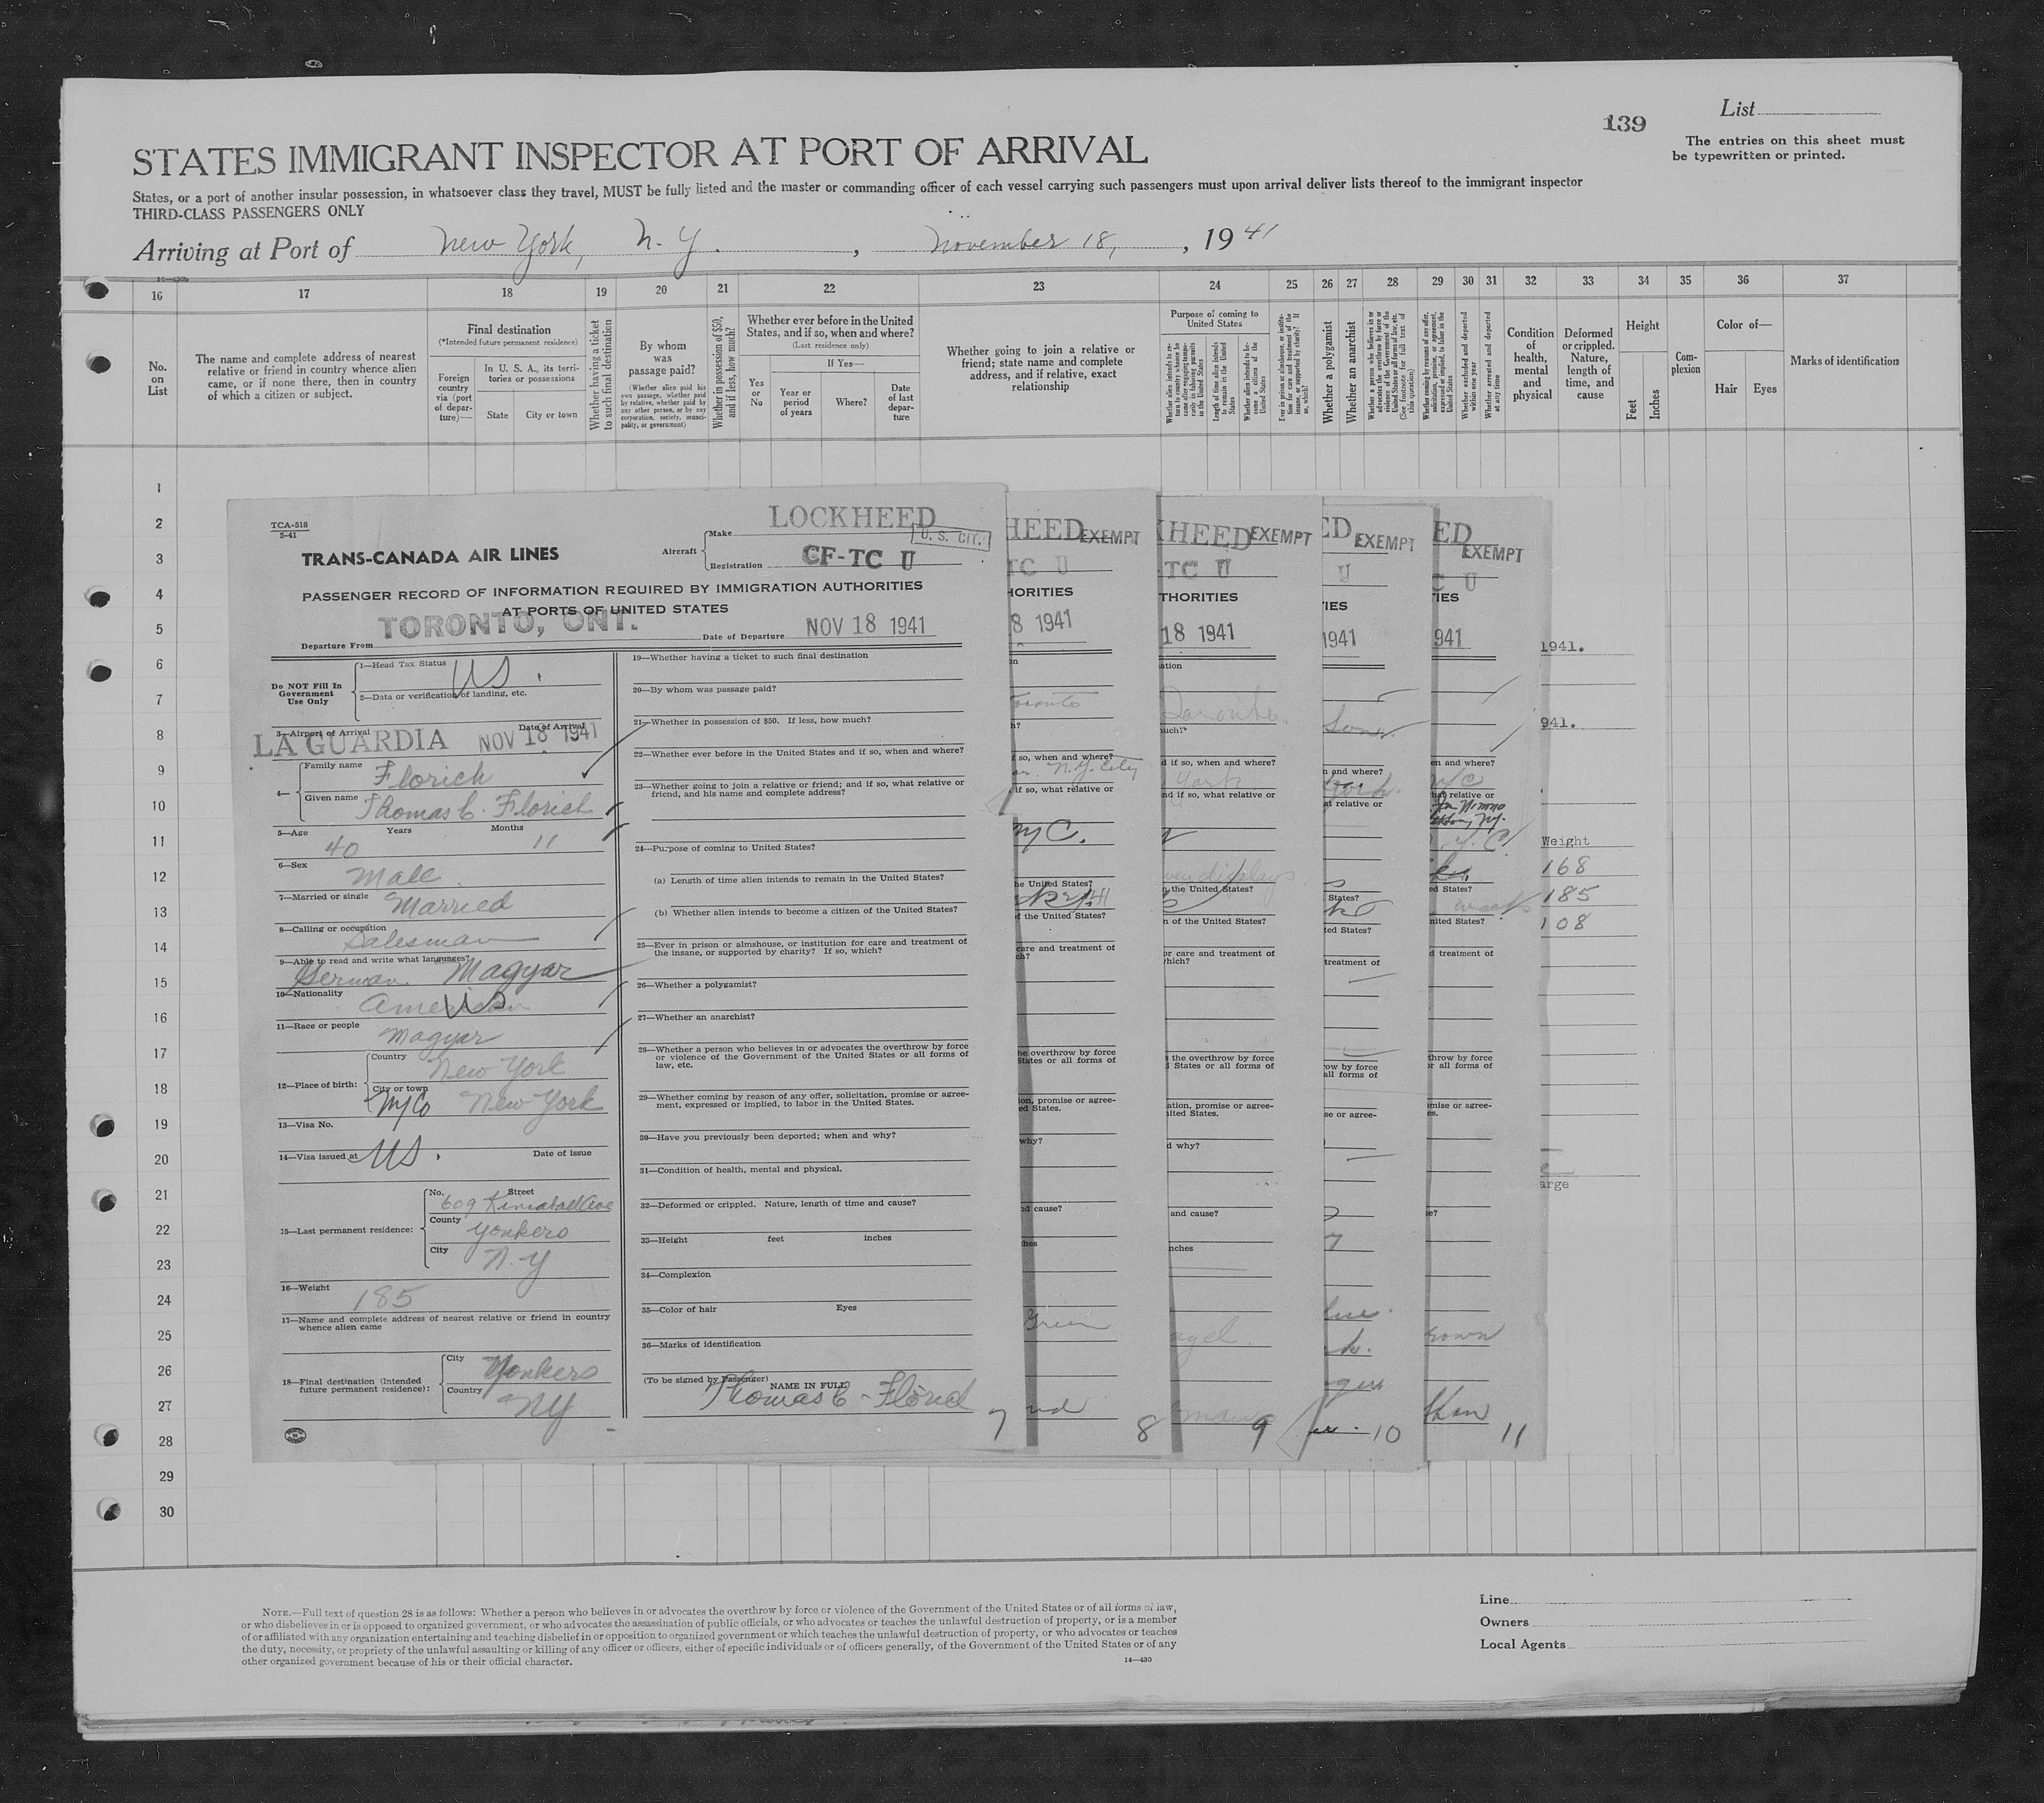 139
List
The entries on this sheet must
be typewritten or printed.
STATES IMMIGRANT INSPECTOR AT PORT OF ARRIVAL
States, or a port of another insular possession, in whatsoever class they travel, MUST be fully listed and the master or commanding officer of each vessel carrying such passengers must upon arrival deliver lists thereof to the immigrant inspector
THIRD-CLASS PASSENGERS ONLY
Arriving at Port of New York, N. Y. , November 18, , 1941
16 17 18 19 20 21 22 23 24 25 26 27 28 29 30 31 32 33 34 35 36 37
No.
on
List
The name and complete address of nearest
relative or friend in country whence alien
came, or if none there, then in country
of which a citizen or subject.
Final destination
(*Intended future permanent residence)
Foreign
country
via (port
of depar-
ture)—
In U. S. A., its terri-
tories or possessions
State
City or town
Whether having a ticket
to such final destination
By whom
was
passage paid?
(Whether alien paid his
own passage, whether paid
by relative, whether paid by
any other person, or by any
corporation, society, munici-
pality, or government)
Whether in possession of $50,
and if less, how much?
Whether ever before in the United
States, and if so, when and where?
(Last residence only)
Yes
or
No
If Yes—
Year or
period
of years
Where?
Date
of last
depar-
ture
Whether going to join a relative or
friend; state name and complete
address, and if relative, exact
relationship
Purpose of coming to
United States
Length of time alien intends
to remain in the United
States
Whether alien intends to be-
come a citizen of the
United States
Whether a polygamist
Whether an anarchist
Whether excluded and deported
within one year
Whether arrested and deported
at any time
Condition
of
health,
mental
and
physical
Deformed
or crippled.
Nature,
length of
time, and
cause
Height
Feet
Inches
Com-
plexion
Color of—
Hair
Eyes
Marks of identification
1
2
3
4
5
6
7
8
9
10
11
12
13
14
15
16
17
18
19
20
21
22
23
24
25
26
27
28
29
30
TCA-518
5-41
TRANS-CANADA AIR LINES
Aircraft
Make LOCKHEED
U. S. CIT.
Registration CF-TC U
PASSENGER RECORD OF INFORMATION REQUIRED BY IMMIGRATION AUTHORITIES
AT PORTS OF UNITED STATES
Departure From TORONTO, ONT. Date of Departure NOV 18 1941
Do NOT Fill In
Government
Use Only
1—Head Tax Status US.
2—Data or verification of landing, etc.
3—Airport of Arrival Date of Arrival
LA GUARDIA NOV 18 1941
4—
Family name Florich
Given name Thomas C. Florich
5—Age 40 Years 11 Months
6—Sex Male
7—Married or single Married
8—Calling or occupation Salesman
9—Able to read and write what languages?
German. Magyar
10—Nationality American US
11—Race or people Magyar
12—Place of birth:
Country New York
City or town NYCo New York
13—Visa No.
14—Visa issued at US. Date of issue
15—Last permanent residence:
No. Street
609 Kimball Ave
County Yonkers
City N-Y
16—Weight 185
17—Name and complete address of nearest relative or friend in country
whence alien came
18—Final destination (Intended
future permanent residence):
City Yonkers
Country NY
19—Whether having a ticket to such final destination
20—By whom was passage paid?
21—Whether in possession of $50. If less, how much?
22—Whether ever before in the United States and if so, when and where?
23—Whether going to join a relative or friend; and if so, what relative or
friend, and his name and complete address?
24—Purpose of coming to United States?
(a) Length of time alien intends to remain in the United States?
(b) Whether alien intends to become a citizen of the United States?
25—Ever in prison or almshouse, or institution for care and treatment of
the insane, or supported by charity? If so, which?
26—Whether a polygamist?
27—Whether an anarchist?
28—Whether a person who believes in or advocates the overthrow by force
or violence of the Government of the United States or all forms of
law, etc.
29—Whether coming by reason of any offer, solicitation, promise or agree-
ment, expressed or implied, to labor in the United States.
30—Have you previously been deported; when and why?
31—Condition of health, mental and physical.
32—Deformed or crippled. Nature, length of time and cause?
33—Height feet inches
34—Complexion
35—Color of hair Eyes
36—Marks of identification
(To be signed by Passenger)
NAME IN FULL
Thomas C. Florich
7
HEED EXEMPT
TC U
HORITIES
8 1941
Green
8
KHEED EXEMPT
-TC U
THORITIES
18 1941
9
ED EXEMPT
U
IES
1941
10
ED
EXEMPT
C U
IES
941
11
1941.
941.
Weight
168
185
108
arge
NOTE.—Full text of question 28 is as follows: Whether a person who believes in or advocates the overthrow by force or violence of the Government of the United States or of all forms of law,
or who disbelieves in or is opposed to organized government, or who advocates the assassination of public officials, or who advocates or teaches the unlawful destruction of property, or is a member
of or affiliated with any organization entertaining and teaching disbelief in or opposition to organized government or which teaches the unlawful destruction of property, or who advocates or teaches
the duty, necessity, or propriety of the unlawful assaulting or killing of any officer or officers, either of specific individuals or of officers generally, of the Government of the United States or of any
other organized government because of his or their official character.
14—430
Line
Owners
Local Agents